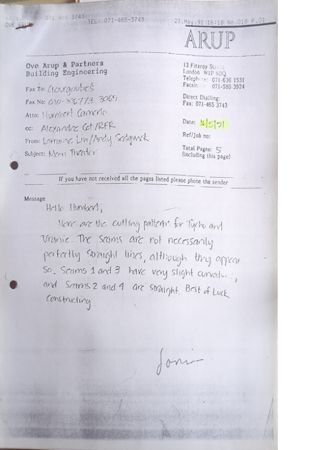 TEL: 071-465-3743 23.May.91 16:18 No.018 P.01
ARUP
Ove Arup & Partners
Building Engineering
13 Fitzroy
London W1P 6BQ
Telephone: 071-636 1531
071-580 3924
Fax To:
Fax No:
Direct Dialling:
Fax: 071-465 3743
Attn: Humbert Camerlo
cc: Alexandre Cot/RFR
Date:
From: Lorraine Lin/Andy Sedgwick
Ref/Job no:
Subject: Theater
Total Pages: 5
(including this page)
If you have not received all the pages listed please phone the sender
Message
Hello Humbert,
Here are the cutting patterns for Tycho and
Uranie. The seams are not necessarily
perfectly straight lines, although they appear
so. Seams 1 and 3 have very slight
and Seams 2 and 4 are straight. Best of Luck
Constructing